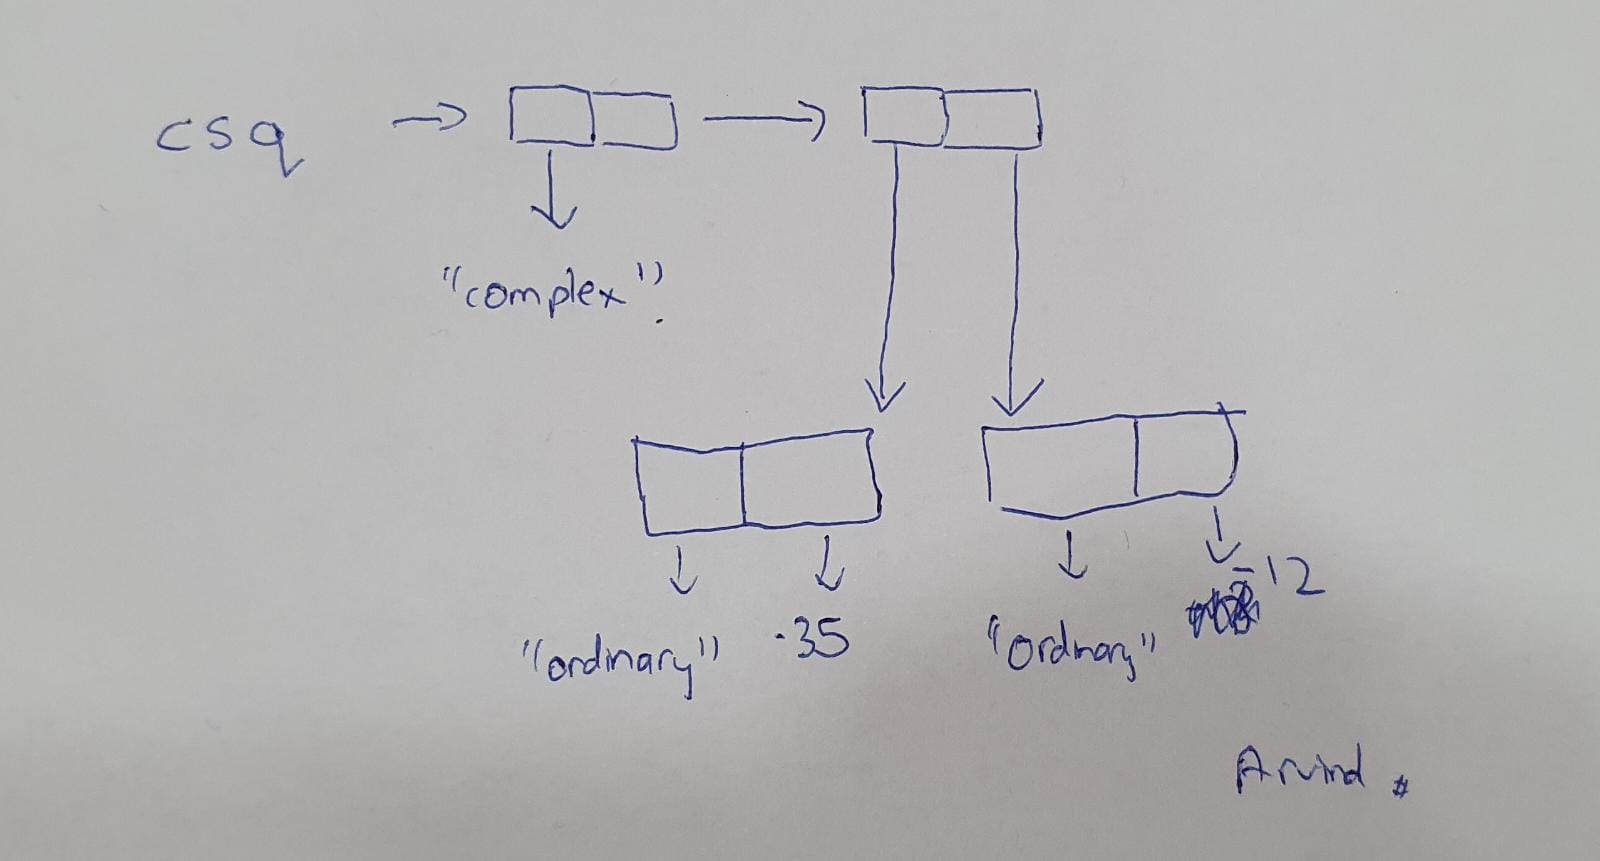 csq
"complex".
"ordinary" -35 "Ordinary" -12
Arvind